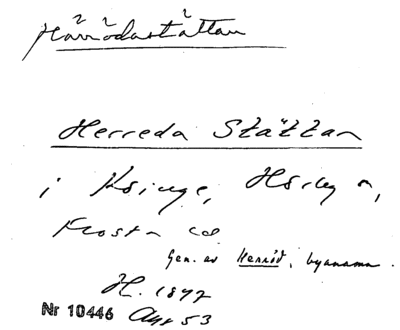 Härrödastättan
Herreda Stättan
i Ksinge, Hörby sn,
Frosta hd
Gen. av Henröd, bynamn.
H. 1847
Nr 10446 Avs 53